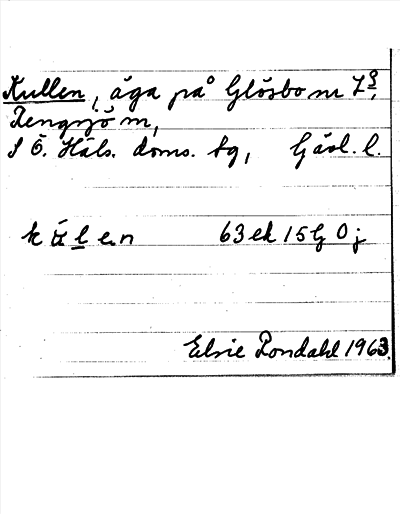 Kullen, äga på Glösbo nr 7
Rengsjö sn,
S Ö. Häls. doms. tg, Gävl. l.
63 ek 15 G 0 j
Elsie Rondahl 1963